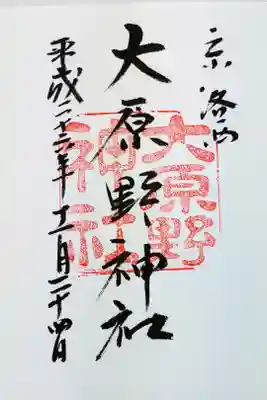 京洛西
大原野神社
平成二十三年十一月二十四日
大原野
神社